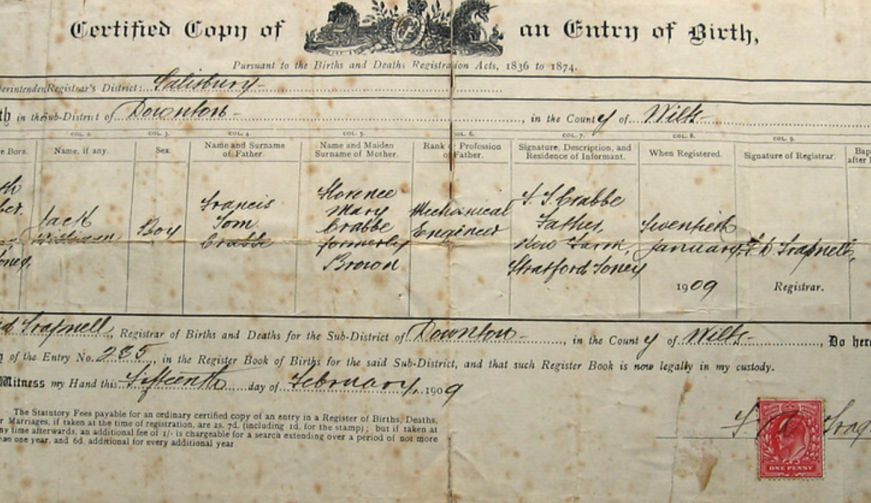 Certified Copy of an Entry of Birth,
Pursuant to the Births and Deaths Registration Acts, 1836 to 1874.
Registrar's District: Salisbury
in the Sub-District of Downton, in the County of Wilts
COL. 2. COL. 3. COL. 4. COL. 5. COL. 6. COL. 7. COL. 8. COL. 9.
Born. Name, if any. Sex. Name and Surname of Father. Name and Maiden Surname of Mother. Rank Profession Father. Signature, Description, and Residence of Informant. When Registered. Signature of Registrar.
Jack
Boy
Francis
Tom
Crabbe
Florence
Mary
Crabbe
formerly
Brown
Mechanical
Engineer
F. T. Crabbe
Father,
New Farm,
Stratford Toney
Twentieth
January,
1909
Trapnell,
Registrar.
Trapnell, Registrar of Births and Deaths for the Sub-District of Downton, in the County of Wilts, Do
of the Entry No. 235, in the Register Book of Births for the said Sub-District, and that such Register Book is now legally in my custody.
Witness my Hand this Fifteenth day of February, 1909
The Statutory Fees payable for an ordinary certified copy of an entry in a Register of Births, Deaths,
or Marriages, if taken at the time of registration, are 2s. 7d. (including 1d. for the stamp); but if taken at
any time afterwards, an additional fee of 1/- is chargeable for a search extending over a period of not more
than one year, and 6d. additional for every additional year.
ONE PENNY